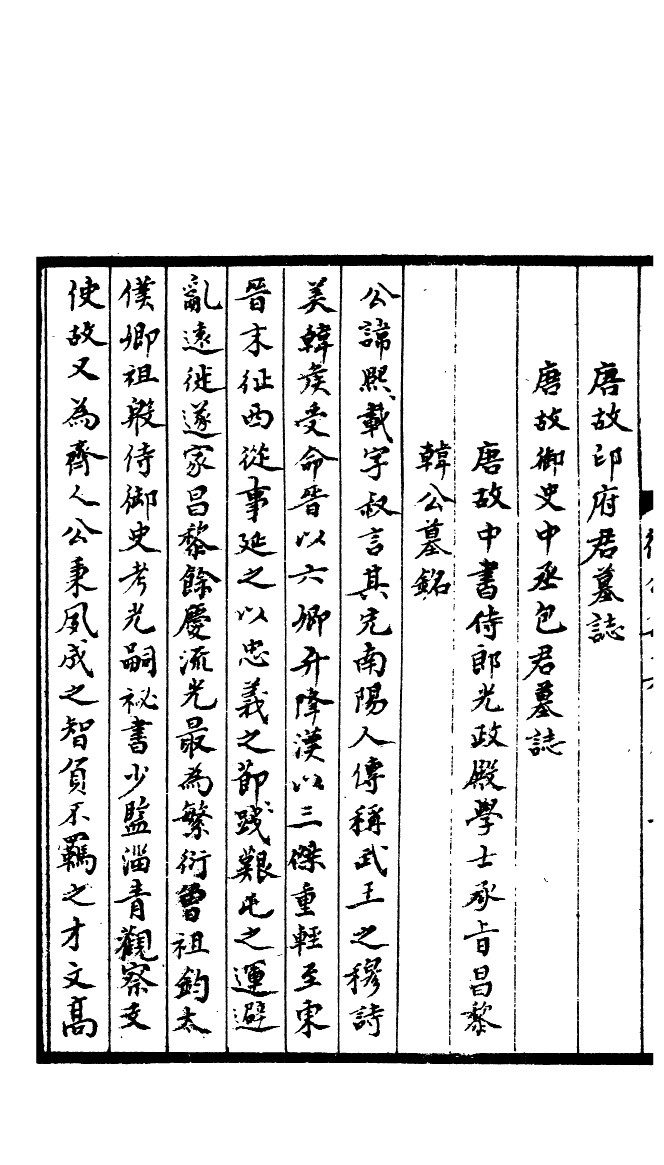 唐故印府君墓誌
唐故御史中丞包君墓誌
唐故中書侍郎光政殿學士承旨昌黎
韓公墓銘
公諱熙載字叔言其先南陽人傳稱武王之穆詩
美韓侯受命晉以六卿升降漢以三傑重輕至東
晉末征西從事延之以忠義之節踐艱屯之運避
亂遠徙遂家昌黎餘慶流光最為繁衍曾祖鈞太
僕卿祖殷侍御史考光嗣祕書少監淄青觀察支
使故又為齊人公秉夙成之智負不羈之才文高